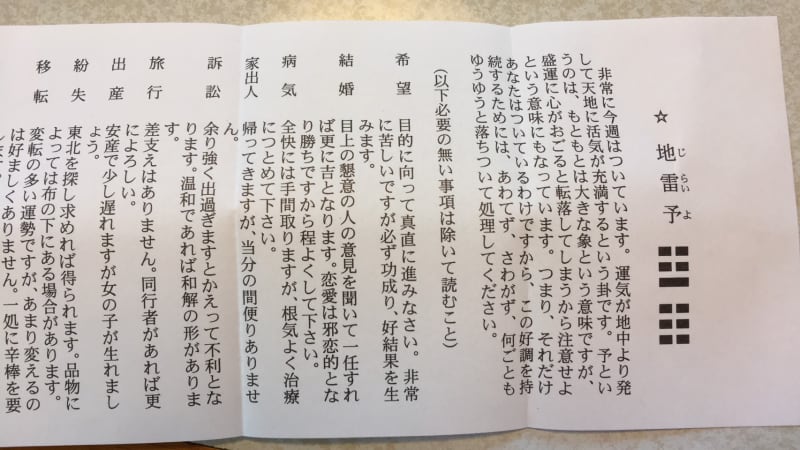 ☆ 地雷予
じ らい よ
非常に今週はついています。運気が地中より発
して天地に活気が充満するという卦です。予とい
うのは、もともとは大きな象という意味ですが、
盛運に心がおごると転落してしまうから注意せよ
という意味にもなっています。つまり、それだけ
あなたはついているわけですから、この好調を持
続するためには、あわてず、さわがず、何ごとも
ゆうゆうと落ちついて処理してください。
(以下必要の無い事項は除いて読むこと)
希望 目的に向って真直に進みなさい。非常
に苦しいですが必ず功成り、好結果を生
みます。
結婚 目上の懇意の人の意見を聞いて一任すれ
ば更に吉となります。恋愛は邪恋的とな
り勝ちですから程よくして下さい。
病気 全快には手間取りますが、根気よく治療
につとめて下さい。
家出人 帰ってきますが、当分の間便りありませ
ん。
訴訟 余り強く出過ぎますとかえって不利とな
ります。温和であれば和解の形がありま
す。
旅行 差支えはありません。同行者があれば更
によろしい。
出産 安産で少し遅れますが女の子が生れまし
ょう。
紛失 東北を探し求めれば得られます。品物に
よっては布の下にある場合があります。
移転 変転の多い運勢ですが、あまり変えるの
は好ましくありません。一処に辛棒を要